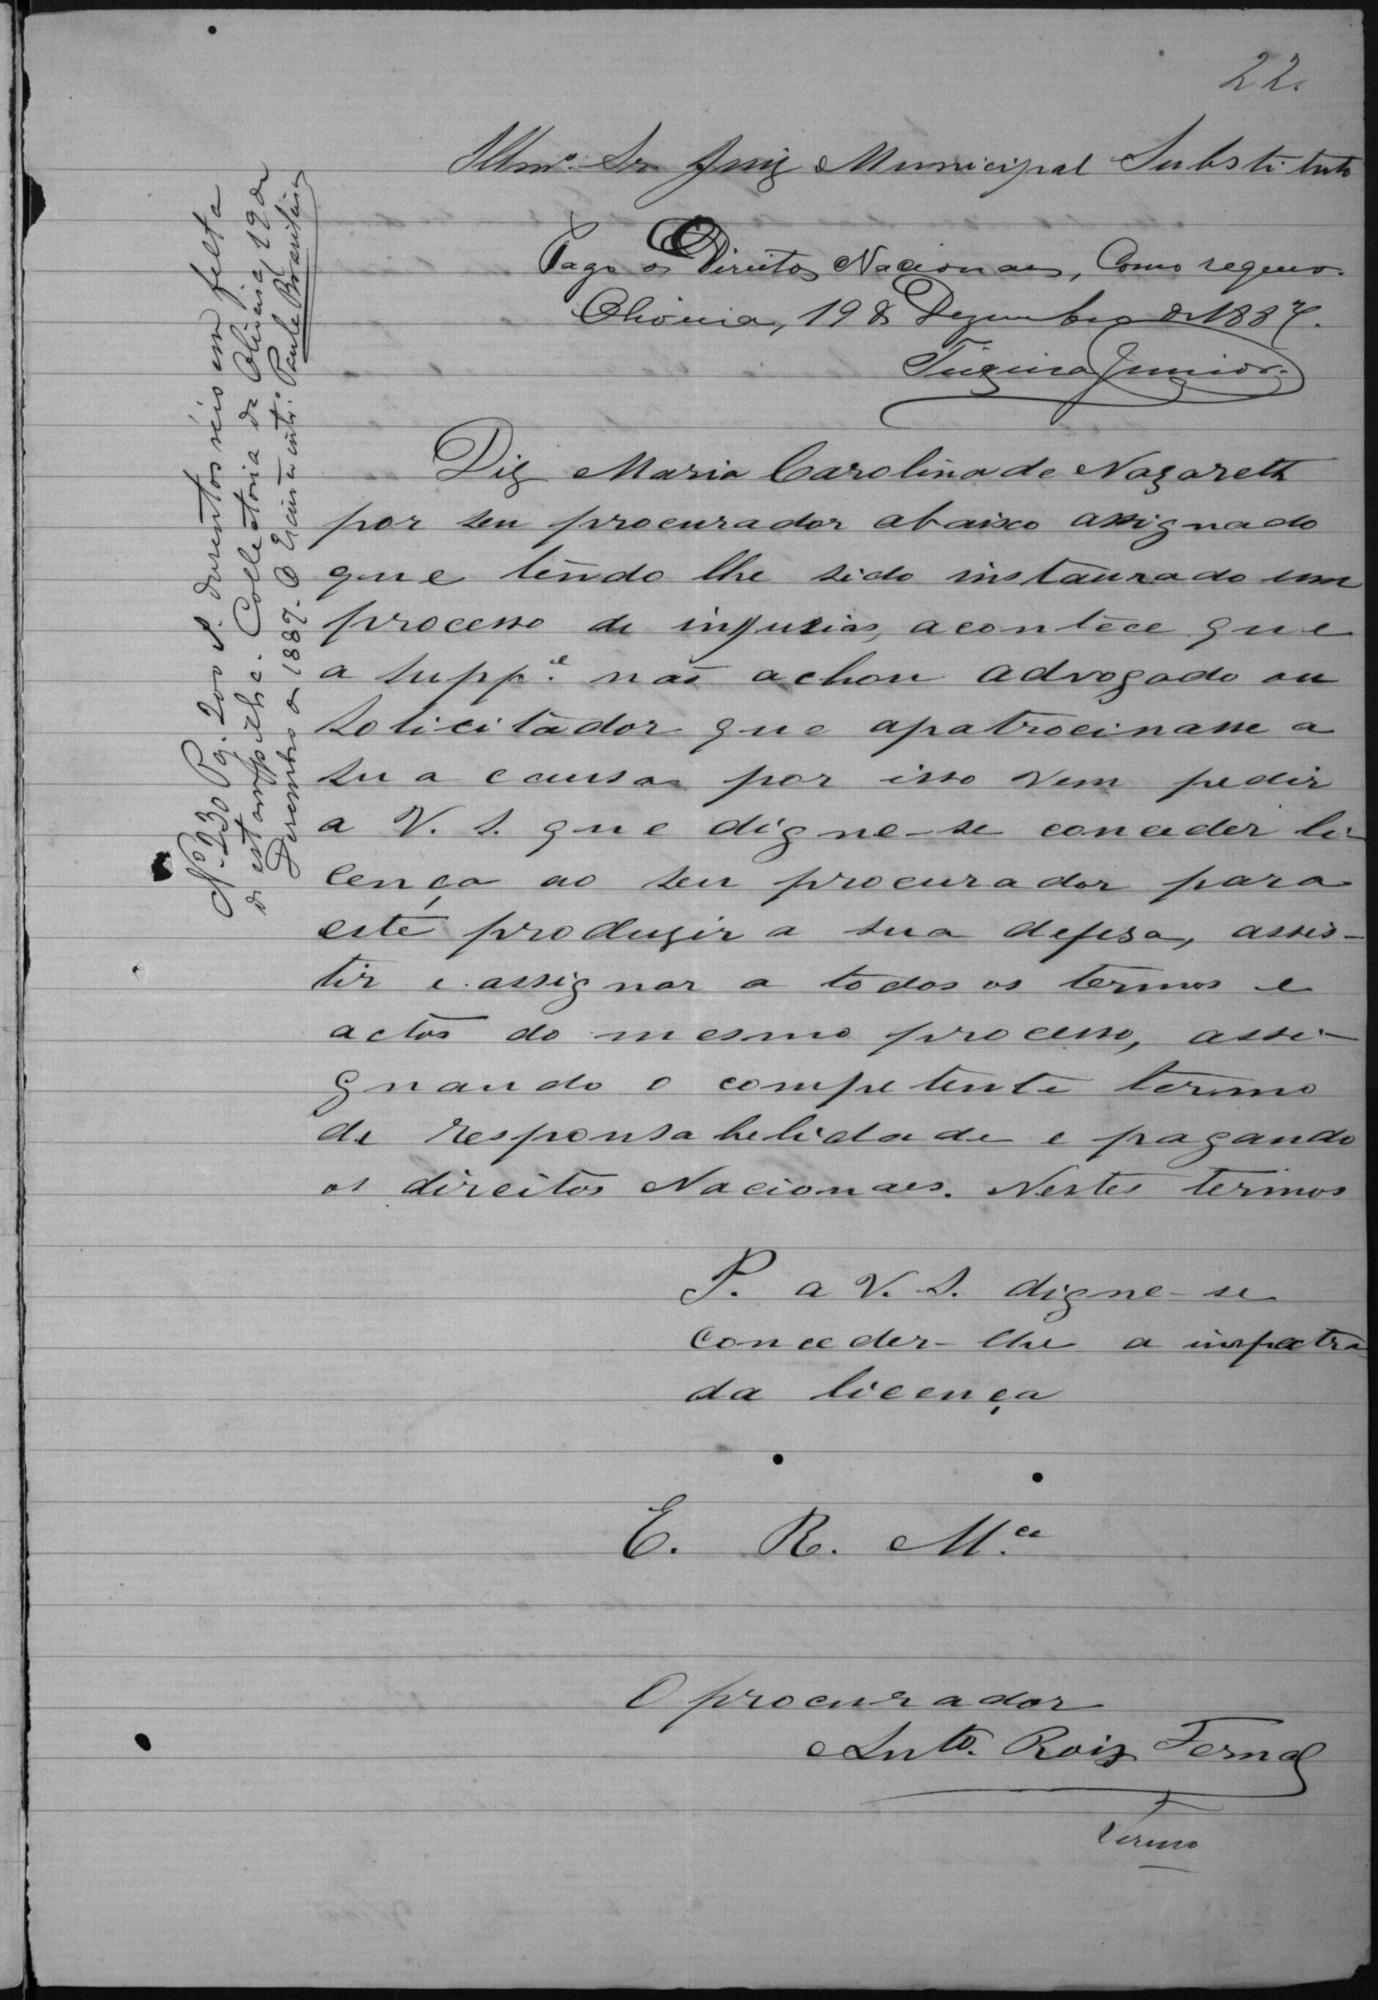 22.
Illmo. Sr. Juiz Municipal Substituto
Pago os Direitos Nacionaes, Como requero.
Oliveira, 19 de Dezembro de 1887.
Junior.
Diz Maria Carolina de Nazareth
por seu procurador abaixo assignado
que tendo lhe sido instaurado um
processo de injurias, acontece que
a suppe. não achou advogado ou
solicitador que apatrocinasse a
sua causa por isso vem pedir
a V. S. que digne-se conceder li-
cença ao seu procurador para
este produzir a sua defesa, assis-
tir e assignar a todos os termos e
actos do mesmo processo, assi-
gnando o competente termo
de responsabelidade e pagando
os direitos Nacionaes. Nestes termos
P. a V. S. digne-se
conceder-lhe a impetra
da licença
E. R. Mce
O procurador
Anto. Roiz Fernes
Termo
No 230 Pg. 200 rs. dusentos réis em falta
di estampilha. Collectoria de Oliveira, 19 de
Desembro de 1887. O Escrivão intro. Paula Brasileiro